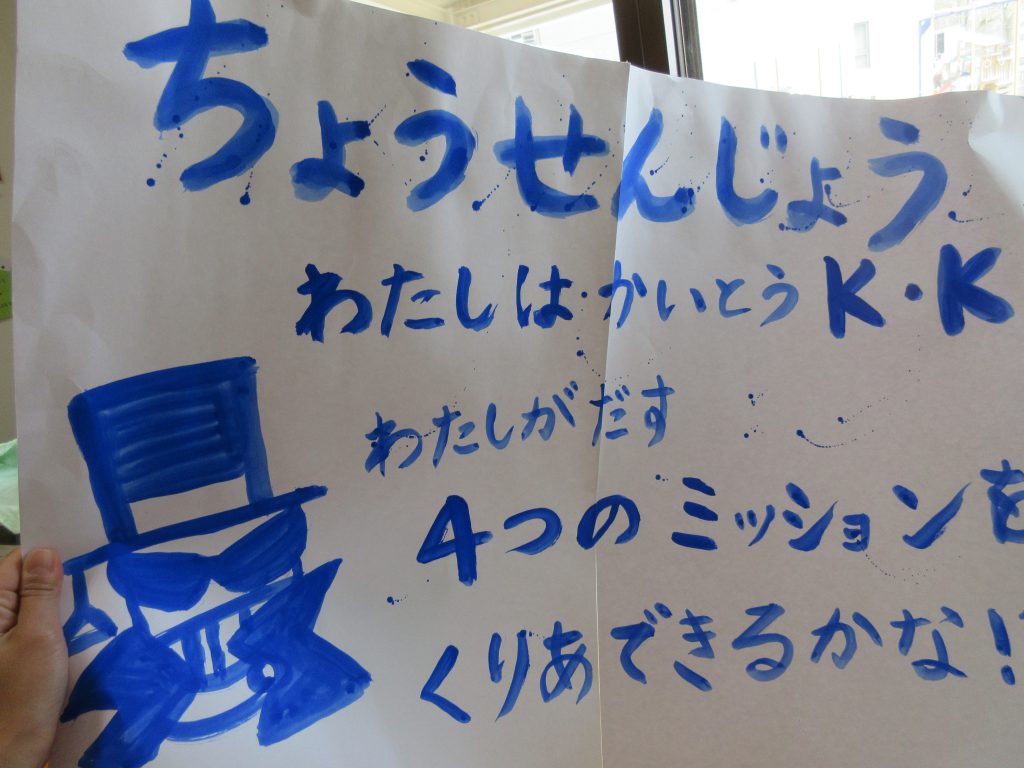 ちょうせんじょう
わたしは・かいとうK・K
わたしがだす
4つのミッションを
くりあできるかな!